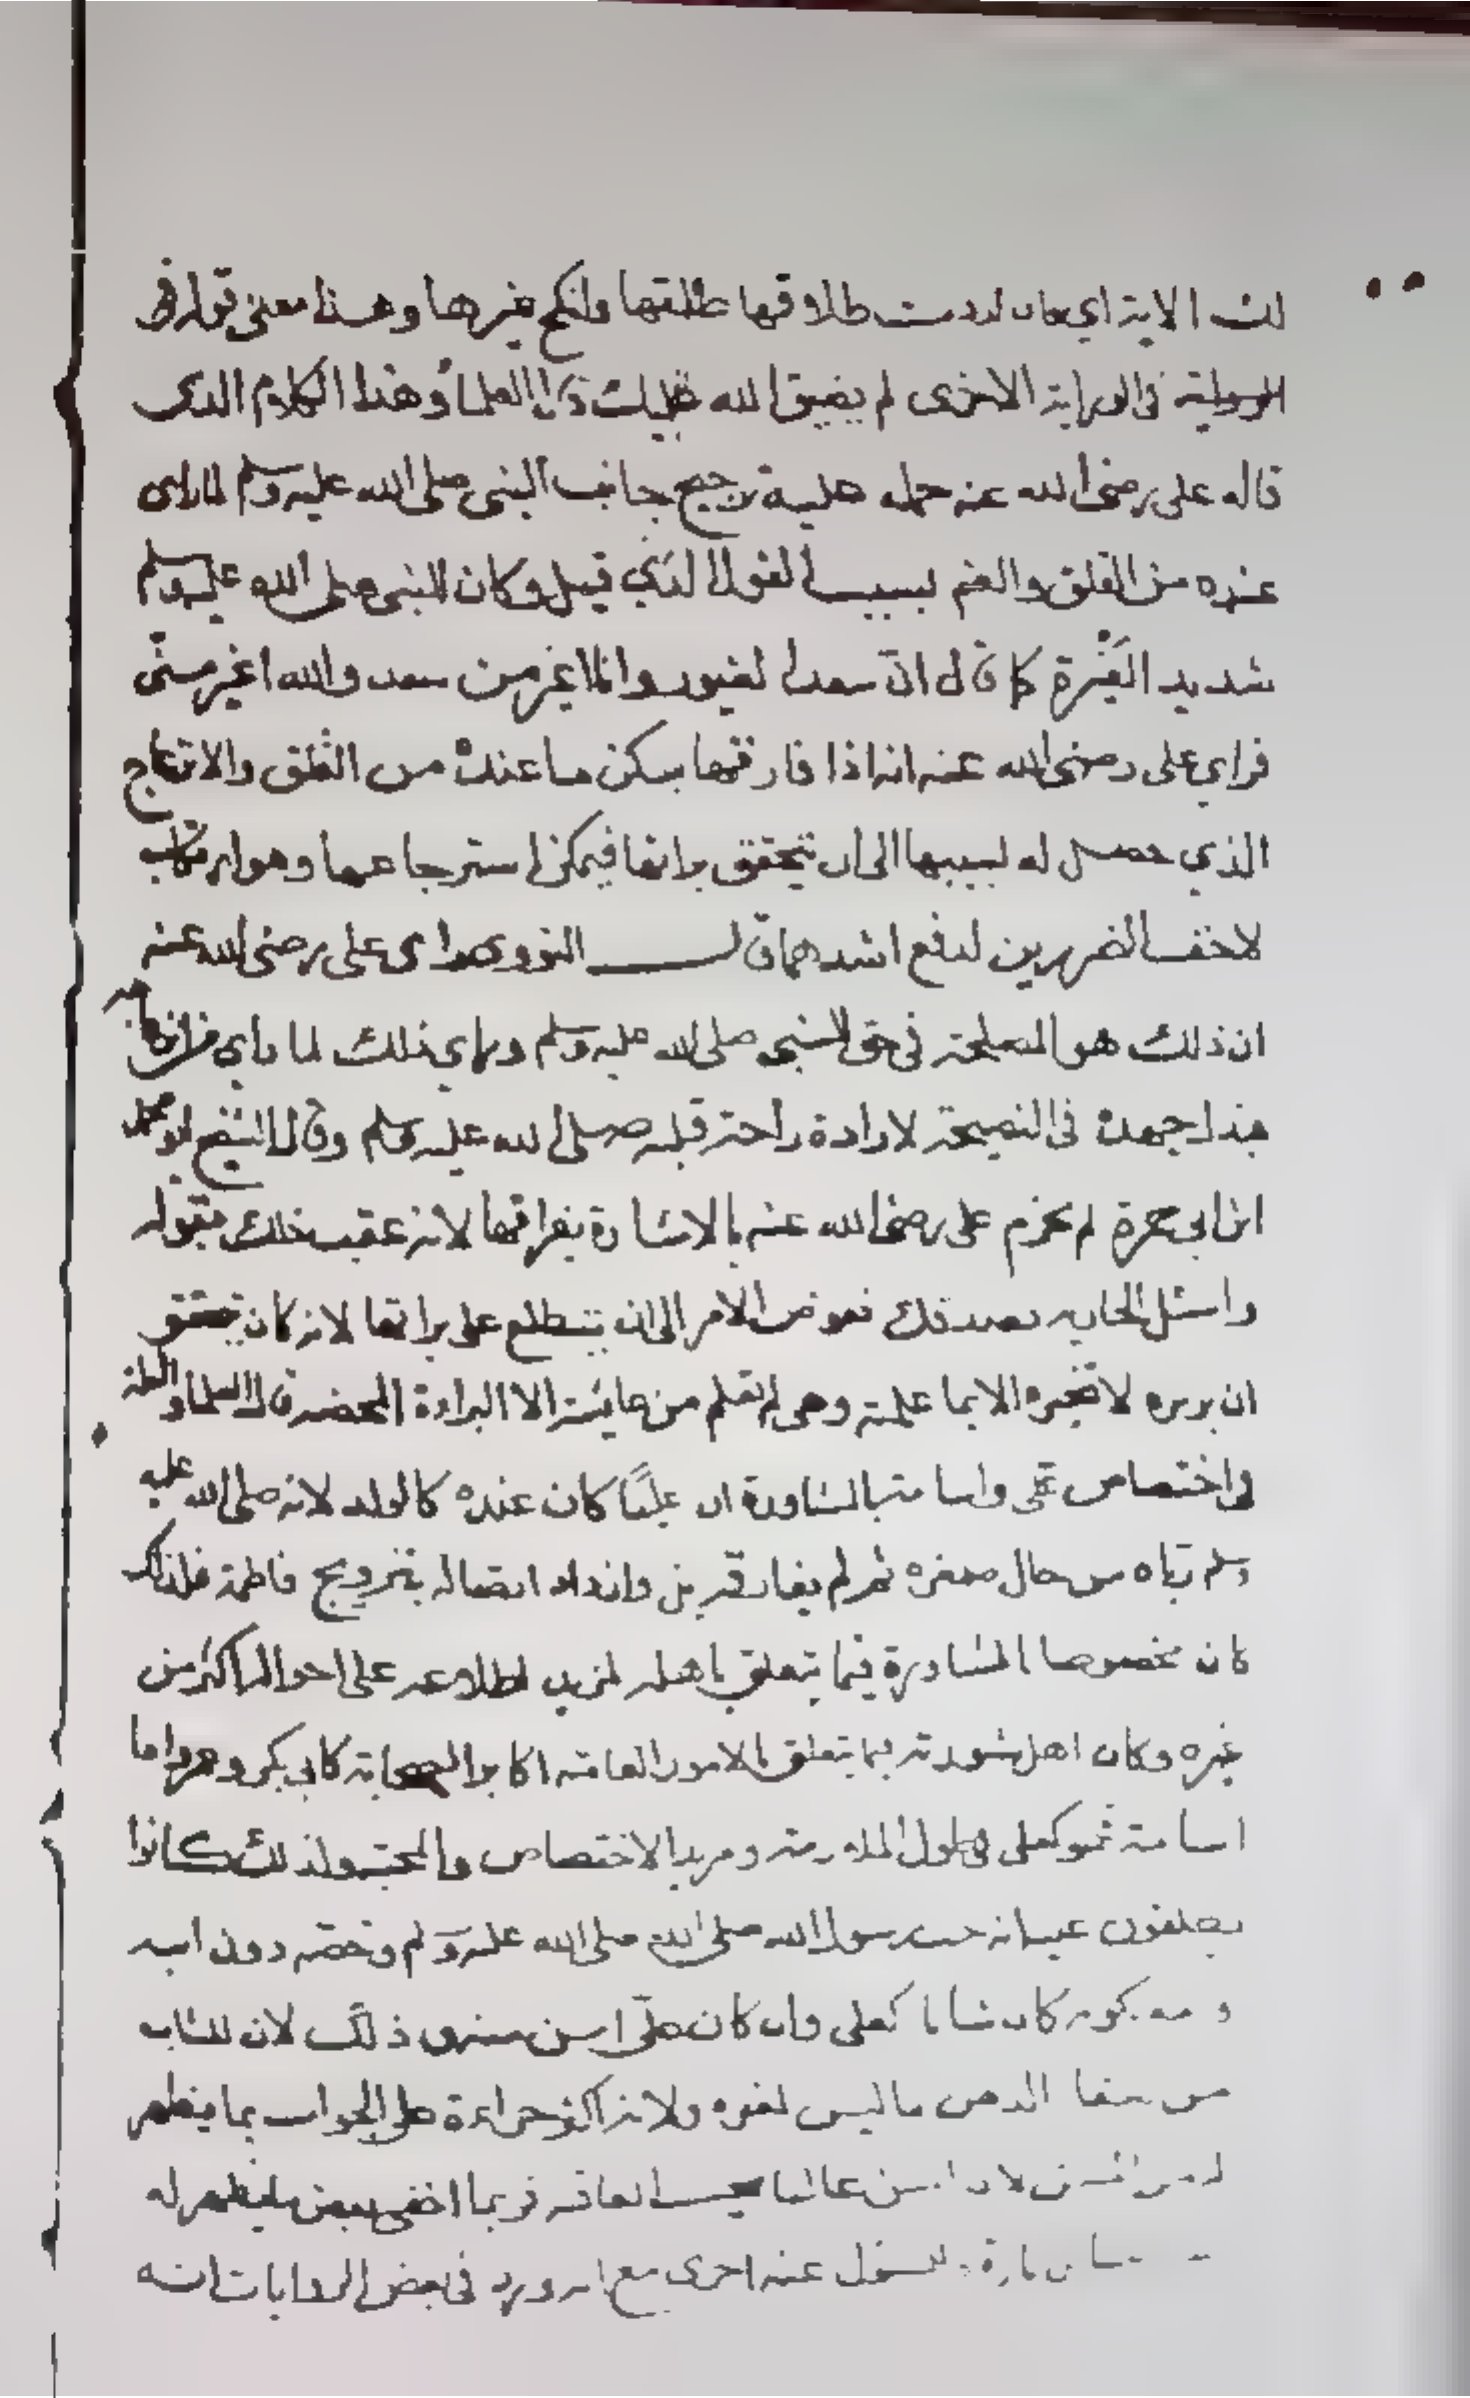 لك الاية اي فان اردت طلاقها طلقتها وانكح غيرها وهذا معنى قوله في
الرواية الاخرى لم يضيق الله عليك قال العلماء وهذا الكلام الذى
قاله على رضى الله عنه حمله عليه ترجيح جانب النبى صلى الله عليه وسلم لما راى
عنده من القلق والغم بسبب القول الذي قيل وكان النبى صلى الله عليه وسلم
شديد الغيرة كما قال انّ سعدا لغيور وانا اغير من سعد والله اغير منّى
فراي على رضى الله عنه انه اذا فارقها سكن ما عنده من القلق والانزعاج
الذي حصل له بسببها الى ان يتحقق براتها فيمكن استرجاعها وهو ارتكاب
لاخف الضررين لدفع اشدهما قال النووى راى على رضى الله عنه
ان ذلك هو المصلحة فى حق النبى صلى الله عليه وسلم وراي ذلك لما راي من انزعاجه
فبذل جهده فى النصيحة لارادة راحة قلبه صلى الله عليه وسلم وقال الشيخ ابو محمد
ابن ابى جمرة لم يجزم على رضى الله عنه بالاشارة بفراقها لانه عقب ذلك بقوله
واسئل الجاريه تصدقك ففوض الامر الى ان يتطلع على براتها لانه كان يتحقق
ان بريره لا تخبره الا بما علمته وهى لم تعلم من عائشة الا البراءة المحضة قال العلماء والعلة
فى اختصاص على واسامة بالمشاورة ان عليًا كان عنده كالولد لانه صلى الله عليه
وسلم ربّاه من حال صغره ثم لم يفارقه بل وازداد اتصاله بتزويج فاطمة فلذلك
كان مخصوصا بالمشاورة فيما يتعلق باهله لمزيد اطلاعه على احواله اكثر من
غيره وكان اهل مشورته فيما يتعلق بالامور العامة اكابر الصحابة كابى بكر وعمر واما
اسامة فهو كعلى فى طول الملازمة ومزيد الاختصاص والمحبة ولذلك كانوا
يطلقون عليه انه حب رسول الله صلى الله صلى الله عليه وسلم وخصه دون ابيه
وامه بكونه كان شابا كعلى وان كان علىّ اسن منه وذلك لان للشاب
من صفا الذهن ما ليس لغيره ولانه اكثر جراءة على الجواب بما يظهر
له من المسن لان المسن غالبا يحسب العاقبة فربما اخفى بعض ما يظهر له
تارة والمسئول عنه اخرى مع انه ورد فى بعض الروايات انه